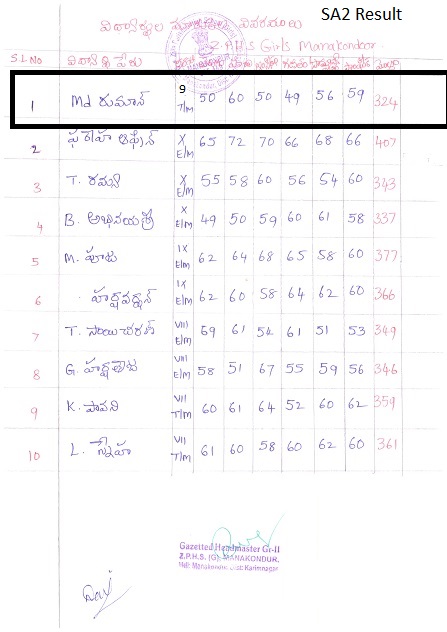 SA2 Result
విద్యార్థుల వివరములు
Z.P.H.S Girls Manakondoor
S.L.No విద్యార్థి పేరు
1 Md రుమాన్ 9 T/M 50 60 50 49 56 59 324
2 X E/M 65 72 70 66 68 66 407
3 T. రమ్య X E/M 55 58 60 56 54 60 343
4 B. అభినయశ్రీ X E/M 49 50 59 60 61 58 337
5 M. పూజ IX E/M 62 64 68 65 58 60 377
6 హర్షవర్ధన్ IX E/M 62 60 58 64 62 60 366
7 T. సాయిచరణ్ VIII E/M 59 61 54 61 51 53 349
8 G. VIII E/M 58 51 67 55 59 56 346
9 K. పావని VII T/M 60 61 64 52 60 62 359
10 L. స్నేహ VII T/M 61 60 58 60 62 60 361
Gazetted Headmaster Gr-II
Z.P.H.S. (G). MANAKONDUR,
Mdl: Manakondur Dist: Karimnagar